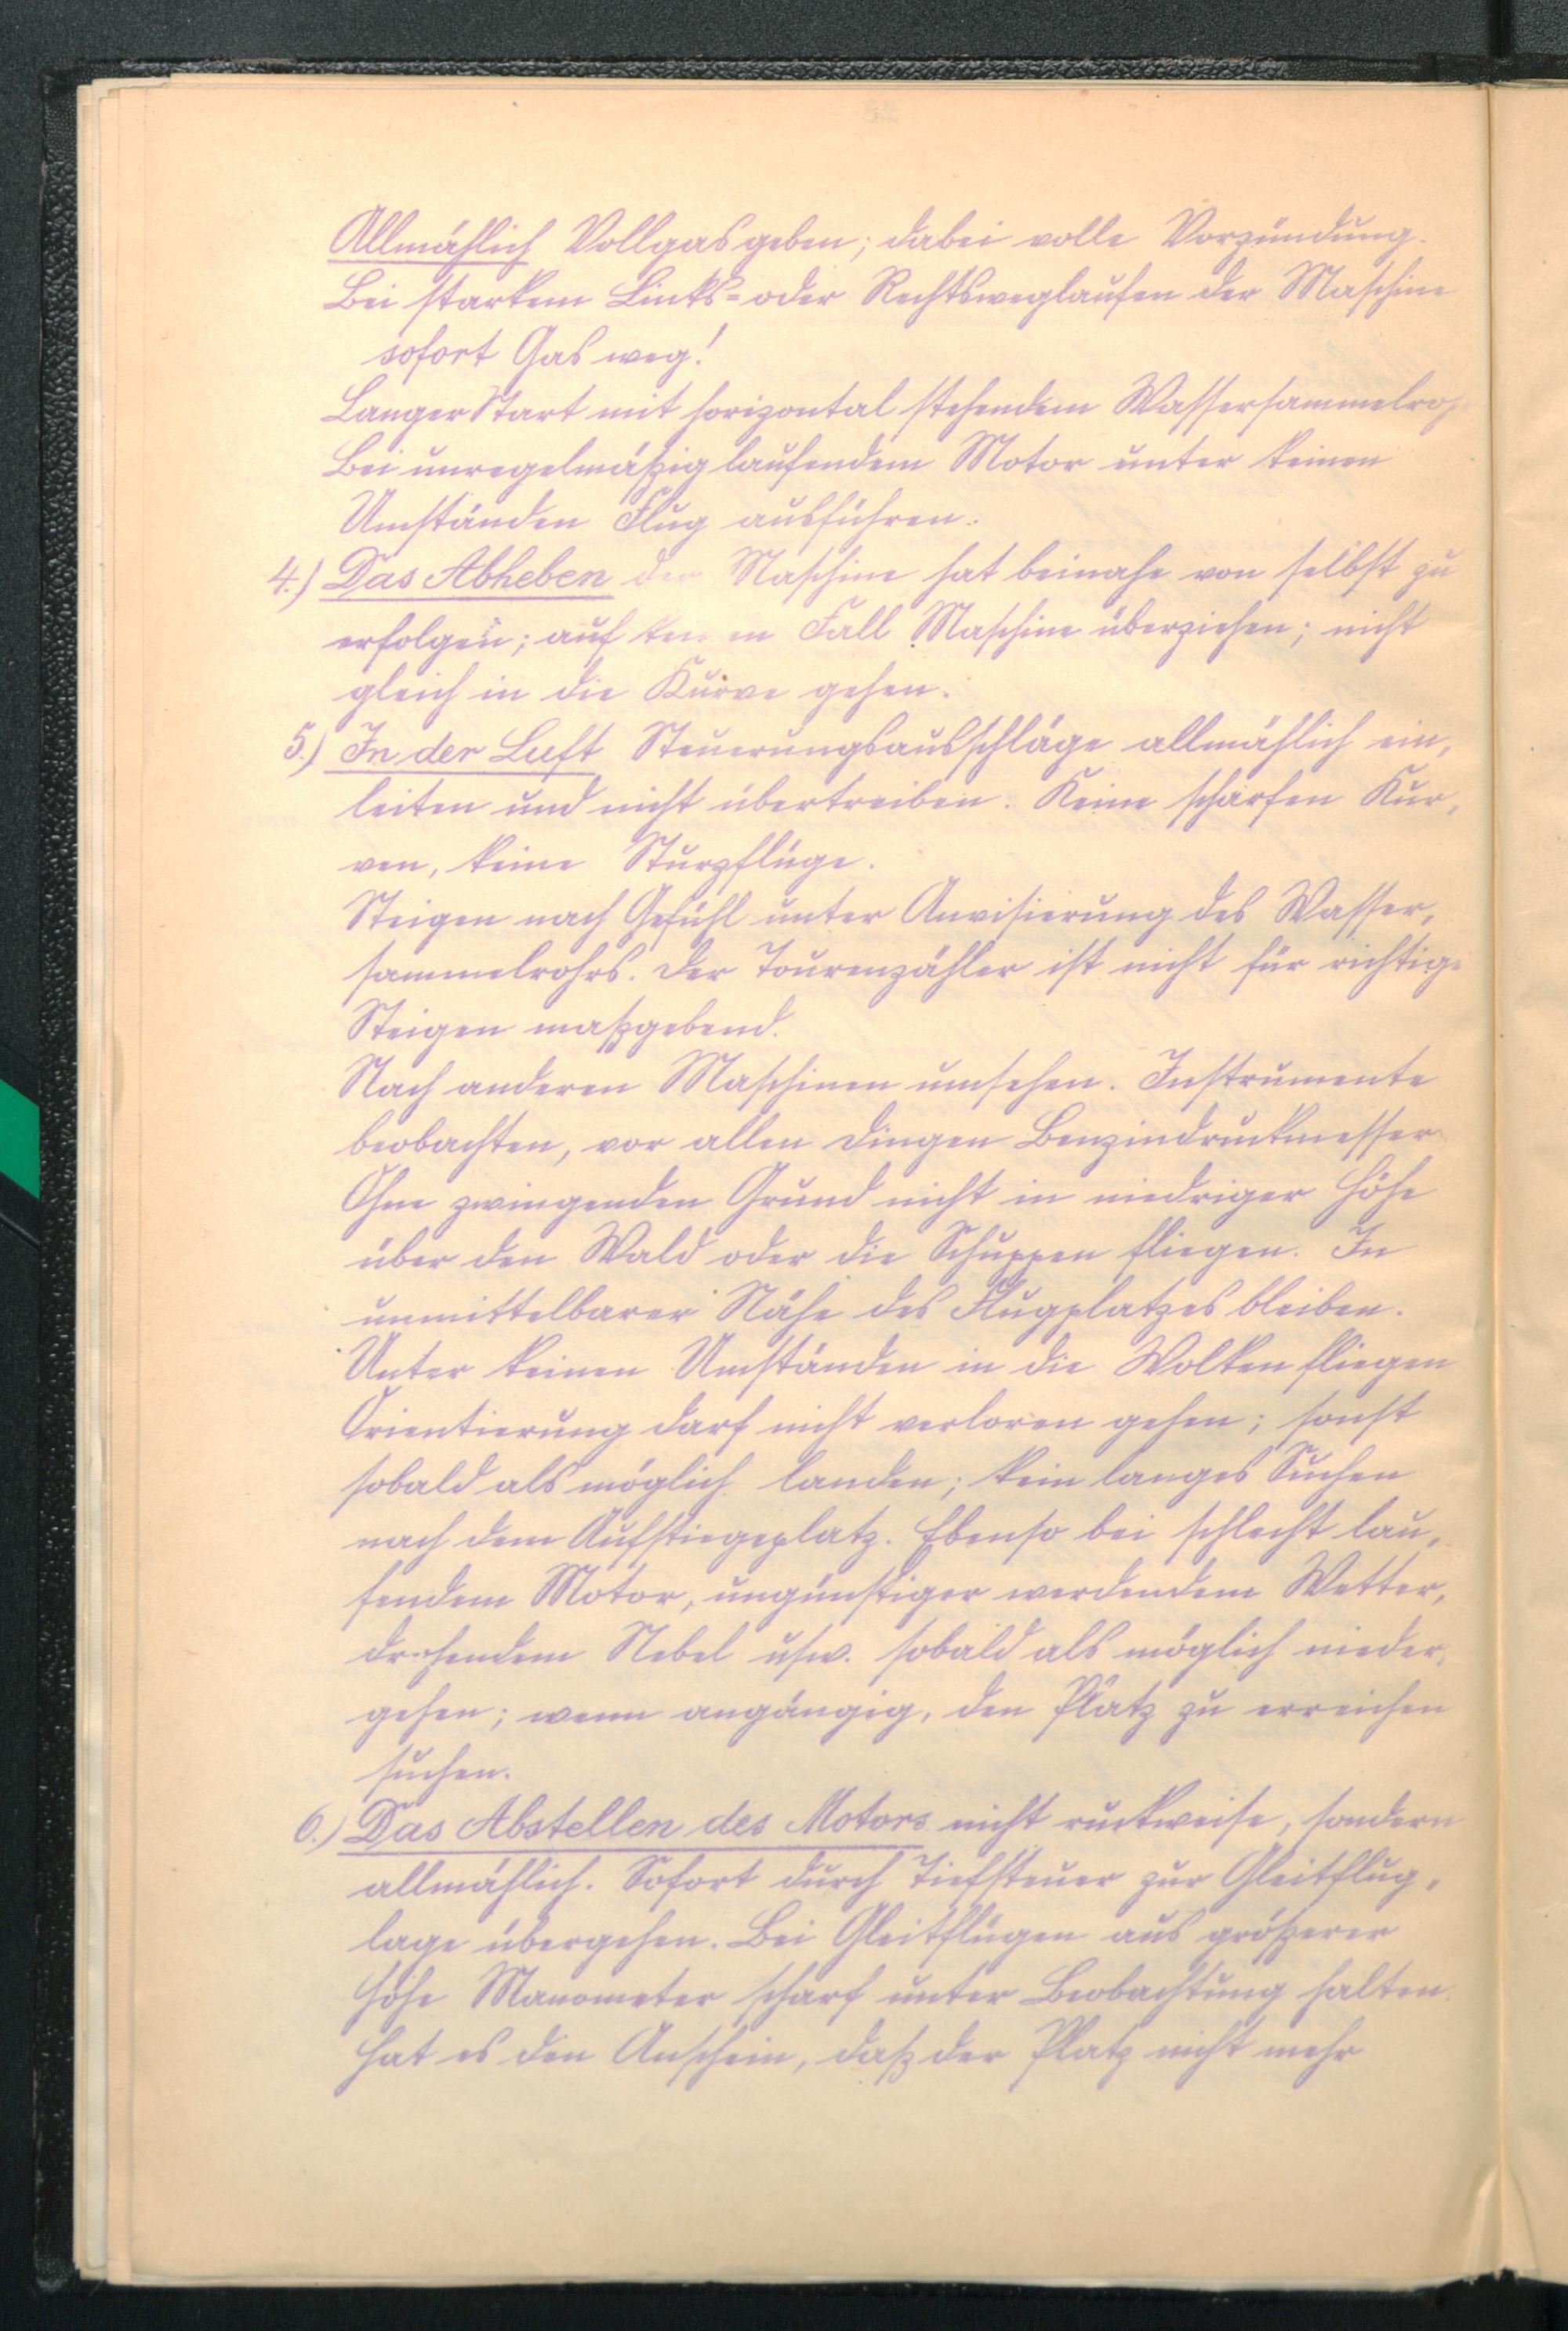 Allmählich Vollgas geben; dabei volle Vorzündung.
Bei starkem Links- oder Rechtsweglaufen der Maschine
sofort Gas weg!
Langer Start mit horizontal stehendem Wassersammelroh
Bei unregelmäßig laufendem Motor unter keinen
Umständen Flug ausführen.
4.) Das Abheben der Maschine hat beinahe von selbst zu
erfolgen; auf keinen Fall Maschine überziehen; nicht
gleich in die Kurve gehen.
5.) In der Luft Steuerungsausschläge allmählich ein-
leiten und nicht übertreiben. Keine scharfen Kur-
ven, keine Sturzflüge.
Steigen nach Gefühl unter Anvisierung des Wasser-
sammelrohrs. Der Tourenzähler ist nicht für richtige
Steigen maßgebend.
Nach anderen Maschinen umsehen. Instrumente
beobachten, vor allen Dingen Benzindruckmesser
Ohne zwingenden Grund nicht in niedriger Höhe
über den Wald oder die Schuppen fliegen. In
unmittelbarer Nähe des Flugplatzes bleiben.
Unter keinen Umständen in die Wolken fliegen
Orientierung darf nicht verloren gehen; sonst
sobald als möglich landen; kein langes Suchen
nach dem Aufstiegeplatz. Ebenso bei schlecht lau-
fendem Motor, ungünstiger werdendem Wetter,
drohendem Nebel usw. sobald als möglich nieder-
gehen; wenn angängig, den Platz zu erreichen
suchen.
6.) Das Abstellen des Motors nicht ruckweise, sondern
allmählich. Sofort durch Tiefsteuer zur Gleitflug-
lage übergehen. Bei Gleitflügen aus größerer
Höhe Manometer scharf unter Beobachtung halten.
Hat es den Anschein, daß der Platz nicht mehr